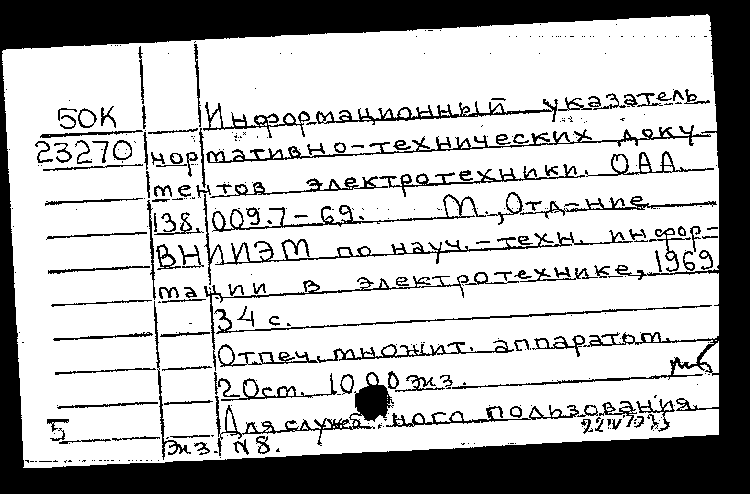 50К Информационный указатель
23270 нормативно-технических доку-
ментов электротехники. ОАА.
138.009.7-69. М., Отд-ние
ВНИИЭМ по науч.-техн. инфор-
мации в электротехнике, 1969
34 с.
Отпеч. множит. аппаратом.
20 см. 1000 экз.
5 Для служебного пользования.
Экз. N8.